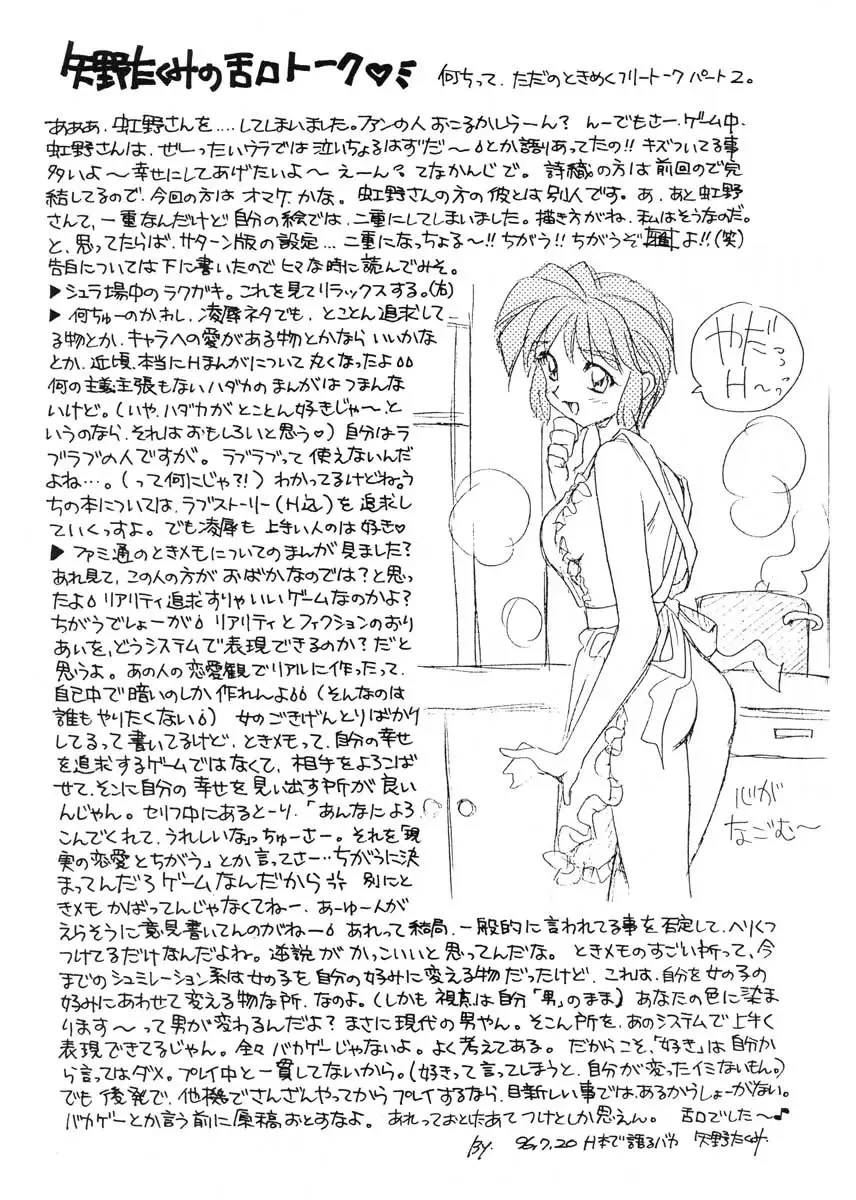 矢野たくみの舌口トーク♡ミ
何ちって、ただのときめくフリートークパート2。
あぁぁ、虹野さんを....してしまいました。ファンの人おこるかしらーん? んーでもさー、ゲーム中、
虹野さんは、ぜーったいウラでは泣いちょるはずだ〜 とか語りあってたの!! キズついてる事
多いよ〜幸せにしてあげたいよ〜 えーん? てなかんじで。詩織の方は前回ので完
結してるので、今回の方はオマケかな。虹野さんの方の彼とは別人です。あ、あと虹野
さんて、一重なんだけど自分の絵では、二重にしてしまいました。描き方がね、私はそうなのだ。
と、思ってたらば、サターン版の設定...二重になっちょる〜!! ちがう!! ちがうぞ よ!!(笑)
告白については下に書いたのでヒマな時に読んでみそ。
▶シュラ場中のラクガキ。これを見てリラックスする。(右)
▶何ちゅーのかわし、凌辱ネタでも、とことん追求して
る物とか、キャラへの愛がある物とかなら いいかな
とか、近頃、本当にHまんがについて丸くなったよ
何の主義主張もないハダカのまんがはつまんな
いけど。(いや、ハダカがとことん好きじゃ〜と
いうのなら、それはおもしろいと思う♡)自分はラ
ブラブの人ですが。ラブラブって使えないんだ
よね…。(って何にじゃ?!) わかってるけどね。う
ちの本については、ラブストーリー(H込)を追求し
ていくっすよ。でも凌辱も上手い人のは好き♡
▶ファミ通のときメモについてのまんが見ました?
あれ見て、この人の方がおばかなのでは?と思っ
たよ リアリティ追求すりゃいいゲームなのかよ?
ちがうでしょーが リアリティとフィクションのおり
あいを、どうシステムで表現できるのか?だと
思うよ。あの人の恋愛観でリアルに作ったって、
自己中で暗いのしか作れんよ (そんなのは
誰もやりたくない) 女のごきげんとりばかり
してるって書いてるけど、ときメモって、自分の幸せ
を追求するゲームではなくて、相手をよろこば
せて、そこに自分の幸せを見い出す所が良い
んじゃん。セリフ中にあるとーり、「あんなによろ
こんでくれて、うれしいな」っちゅーさー。それを「現
実の恋愛とちがう」とか言ってさー..ちがうに決
まってんだろゲームなんだから 別にと
きメモ かばってんじゃなくてねー、あーゆー人が
えらそうに意見書いてんのがねー あれって結局、一般的に言われてる事を否定して、ヘりくつ
つけてるだけなんだよね。逆説がかっこいいと思ってんだな。ときメモのすごい所って、今
までのシュミレーション系は女の子を自分の好みに変える物だったけど、これは、自分を女の子の
好みにあわせて変える物な所、なのよ。(しかも視点は自分「男」のまま) あなたの色に染ま
ります〜って男が変わるんだよ? まさに現代の男やん。そこん所を、あのシステムで上手く
表現できてるじゃん。全々バカゲーじゃないよ。よく考えてある。だからこそ、「好き」は自分か
ら言ってはダメ。プレイ中と一貫してないから。(好きって言ってしまうと、自分が変ったイミないもん。)
でも後発で、他機でさんざんやってからプレイするなら、目新しい事では、あるからしょーがない。
バカゲーとか言う前に原稿おとすなよ。あれっておとしたあてつけとしか思えん。舌口でした〜♪
BY. 96,7,20 H本で語るバカ 矢野たくみ
やだっっ
H〜っっ
心が
なごむ〜